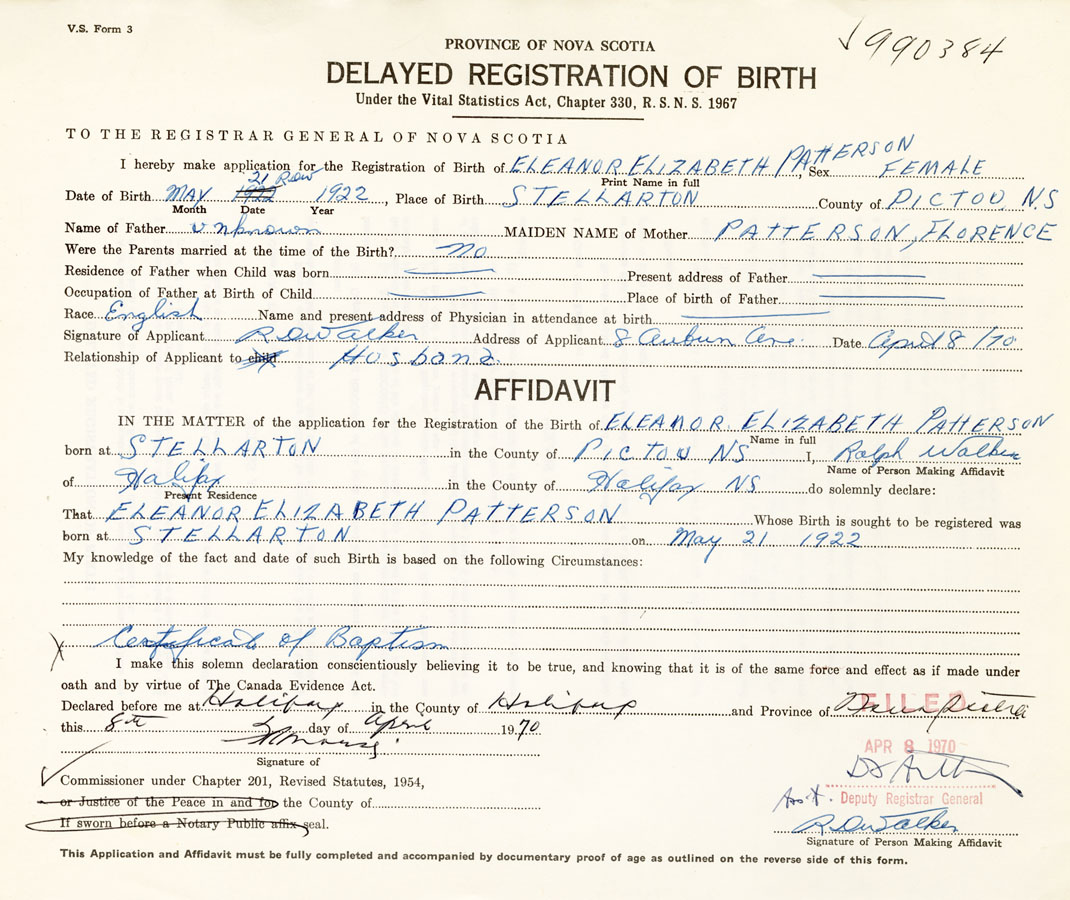 V.S. Form 3
990384
PROVINCE OF NOVA SCOTIA
DELAYED REGISTRATION OF BIRTH
Under the Vital Statistics Act, Chapter 330, R. S. N. S. 1967
TO THE REGISTRAR GENERAL OF NOVA SCOTIA
I hereby make application for the Registration of Birth of ELEANOR ELIZABETH PATTERSON, Sex FEMALE
Print Name in full
21 RDW
Date of Birth MAY 1922 1922, Place of Birth STELLARTON County of PICTOU N.S
Month Date Year
Name of Father unknown MAIDEN NAME of Mother PATTERSON, FLORENCE
Were the Parents married at the time of the Birth? No
Residence of Father when Child was born Present address of Father
Occupation of Father at Birth of Child Place of birth of Father
Race English Name and present address of Physician in attendance at birth
Signature of Applicant R D Walker Address of Applicant 8 Auburn Ave. Date April 8/70
Relationship of Applicant to child Husband
AFFIDAVIT
IN THE MATTER of the application for the Registration of the Birth of ELEANOR ELIZABETH PATTERSON
Name in full
born at STELLARTON in the County of PICTOU NS I, Ralph Walker
Name of Person Making Affidavit
of Halifax in the County of Halifax NS do solemnly declare:
Present Residence
That ELEANOR ELIZABETH PATTERSON Whose Birth is sought to be registered was
born at STELLARTON on May 21 1922
My knowledge of the fact and date of such Birth is based on the following Circumstances:
Certificate of Baptism
I make this solemn declaration conscientiously believing it to be true, and knowing that it is of the same force and effect as if made under
oath and by virtue of The Canada Evidence Act.
Declared before me at Halifax in the County of Halifax and Province of Nova Scotia
FILED
this 8th day of April 1970
APR 8 1970
Signature of
Commissioner under Chapter 201, Revised Statutes, 1954,
or Justice of the Peace in and for the County of
Asst. Deputy Registrar General
If sworn before a Notary Public affix seal.
R D Walker
Signature of Person Making Affidavit
This Application and Affidavit must be fully completed and accompanied by documentary proof of age as outlined on the reverse side of this form.